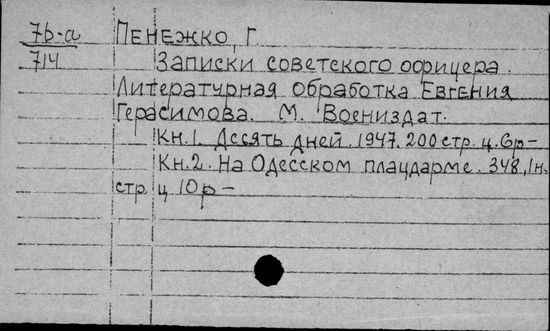 7b-a ПЕНЕЖКО, Г.
714 Записки советского офицера.
Литературная обработка Евгения
Герасимова. М. Воениздат.
Кн.1. Десять дней. 1947. 200 стр. ц. 6р-
Кн.2. На Одесском плацдарме. 348, 1н.
стр. ц 10р-